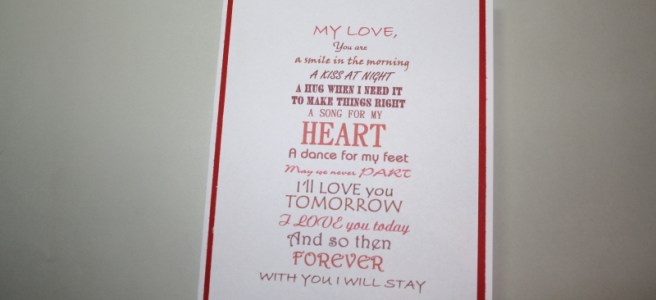 MY LOVE,
You are
a smile in the morning
A KISS AT NIGHT
A HUG WHEN I NEED IT
TO MAKE THINGS RIGHT
A SONG FOR MY
HEART
A dance for my feet
May we never PART
I'll LOVE you
TOMORROW
I LOVE you today
And so then
FOREVER
WITH YOU I WILL STAY